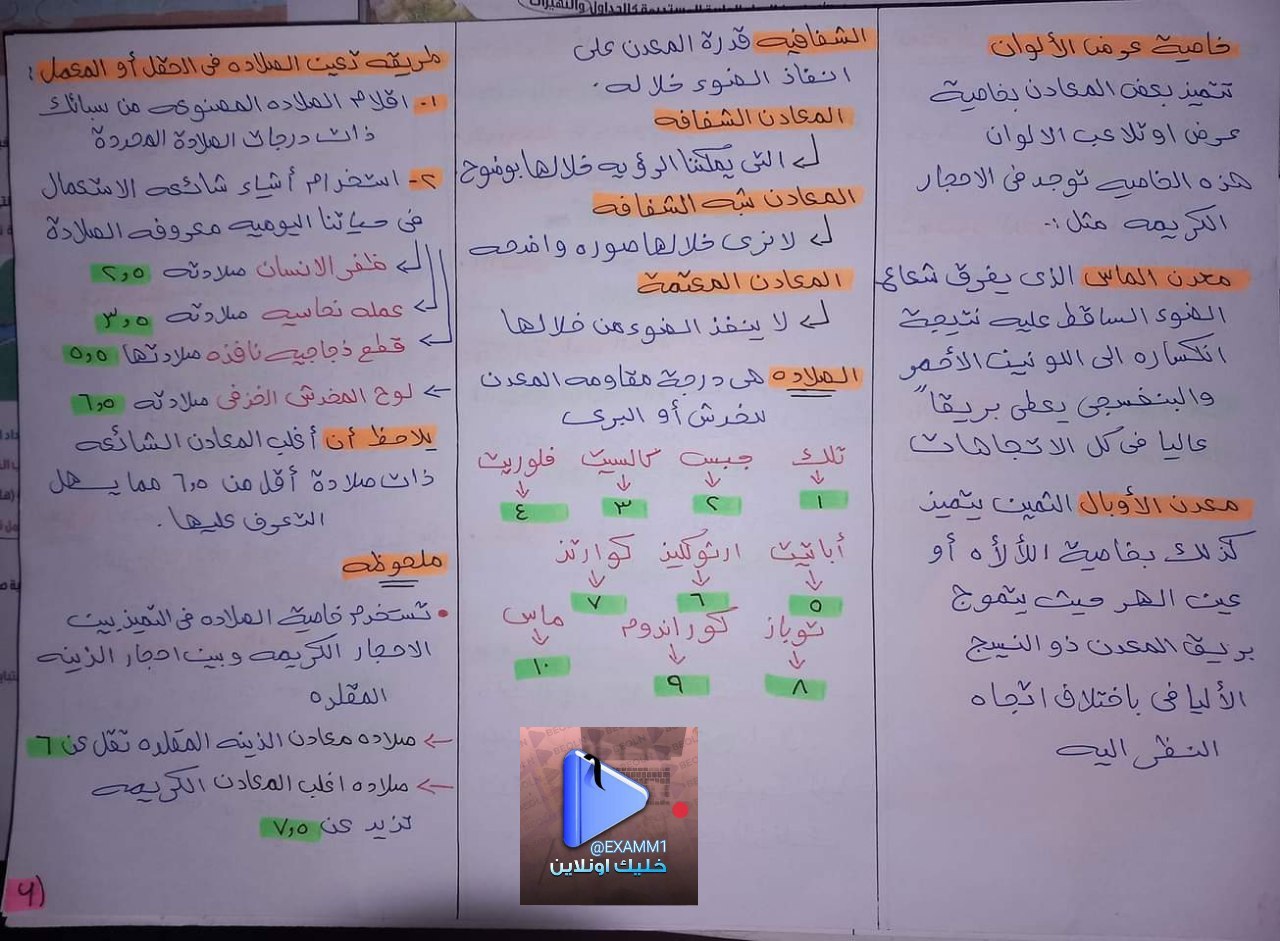 خاصية عرض الألوان
تتميز بعض المعادن بخاصية
عرض او تلاعب الالوان
هذه الخاصيه توجد فى الاحجار
الكريمه مثل :-
معدن الماس الذى يفرق شعاع
الضوء الساقط عليه نتيجة
انكساره الى اللونين الأحمر
والبنفسجي يعطى بريقاً
عاليا فى كل الاتجاهات
معدن الأوبال الثمين يتميز
كذلك بخاصية اللألأه أو
عين الهر حيث يتموج
بريق المعدن ذو النسيج
الأليافى باختلاف اتجاه
النظر اليه
الشفافيه قدرة المعدن على
انفاذ الضوء خلاله .
المعادن الشفافه
التى يمكننا الرؤيه خلالها بوضوح.
المعادن شبه الشفافه
لا نرى خلالها صوره واضحه
المعادن المعتمة
لا ينفذ الضوء من خلالها
الصلاده هى درجة مقاومه المعدن
للخدش أو البرى
تلك جبس كالسيت فلوريت
١ ٢ ٣ ٤
أباتيت ارثوكليز كوارتز
٥ ٦ ٧
توباز كوراندوم ماس
٨ ٩ ١٠
طريقه تعين الصلاده فى الحقل أو المعمل :
١- اقلام الصلاده المصنوعه من سبائك
ذات درجات الصلادة المحددة
٢- استخدام أشياء شائعه الاستعمال
فى حياتنا اليوميه معروفه الصلادة
ظفر الانسان صلادته ٢,٥
عمله نحاسيه صلادته ٣,٥
قطع زجاجيه نافذه صلادتها ٥,٥
لوح المخدش الخزفى صلادته ٦,٥
يلاحظ أن أغلب المعادن الشائعه
ذات صلادة أقل من ٦,٥ مما يسهل
التعرف عليها .
ملحوظه
• تستخدم خاصية الصلاده فى التميز بين
الاحجار الكريمه وبين احجار الزينه
المقلده
صلاده معادن الزينه المقلده تقل عن ٦
صلاده اغلب المعادن الكريمه
تزيد عن ٧,٥
@EXAMM1
خليك اونلاين